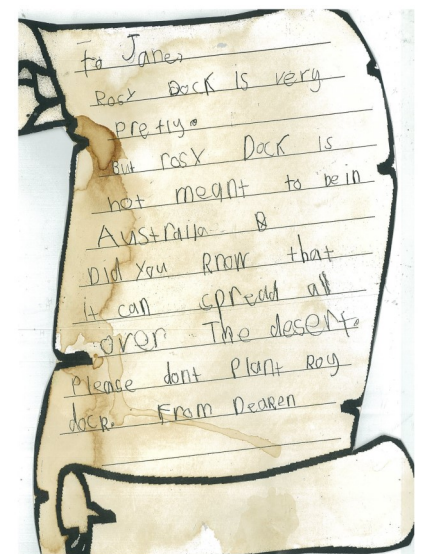 to Jane,
Rosy Dock is very
pretty.
But rosy Dock is
not meant to be in
Australia
Did you know that
it can spread all
over The desert.
Please dont Plant Roy
dock. From Dearen